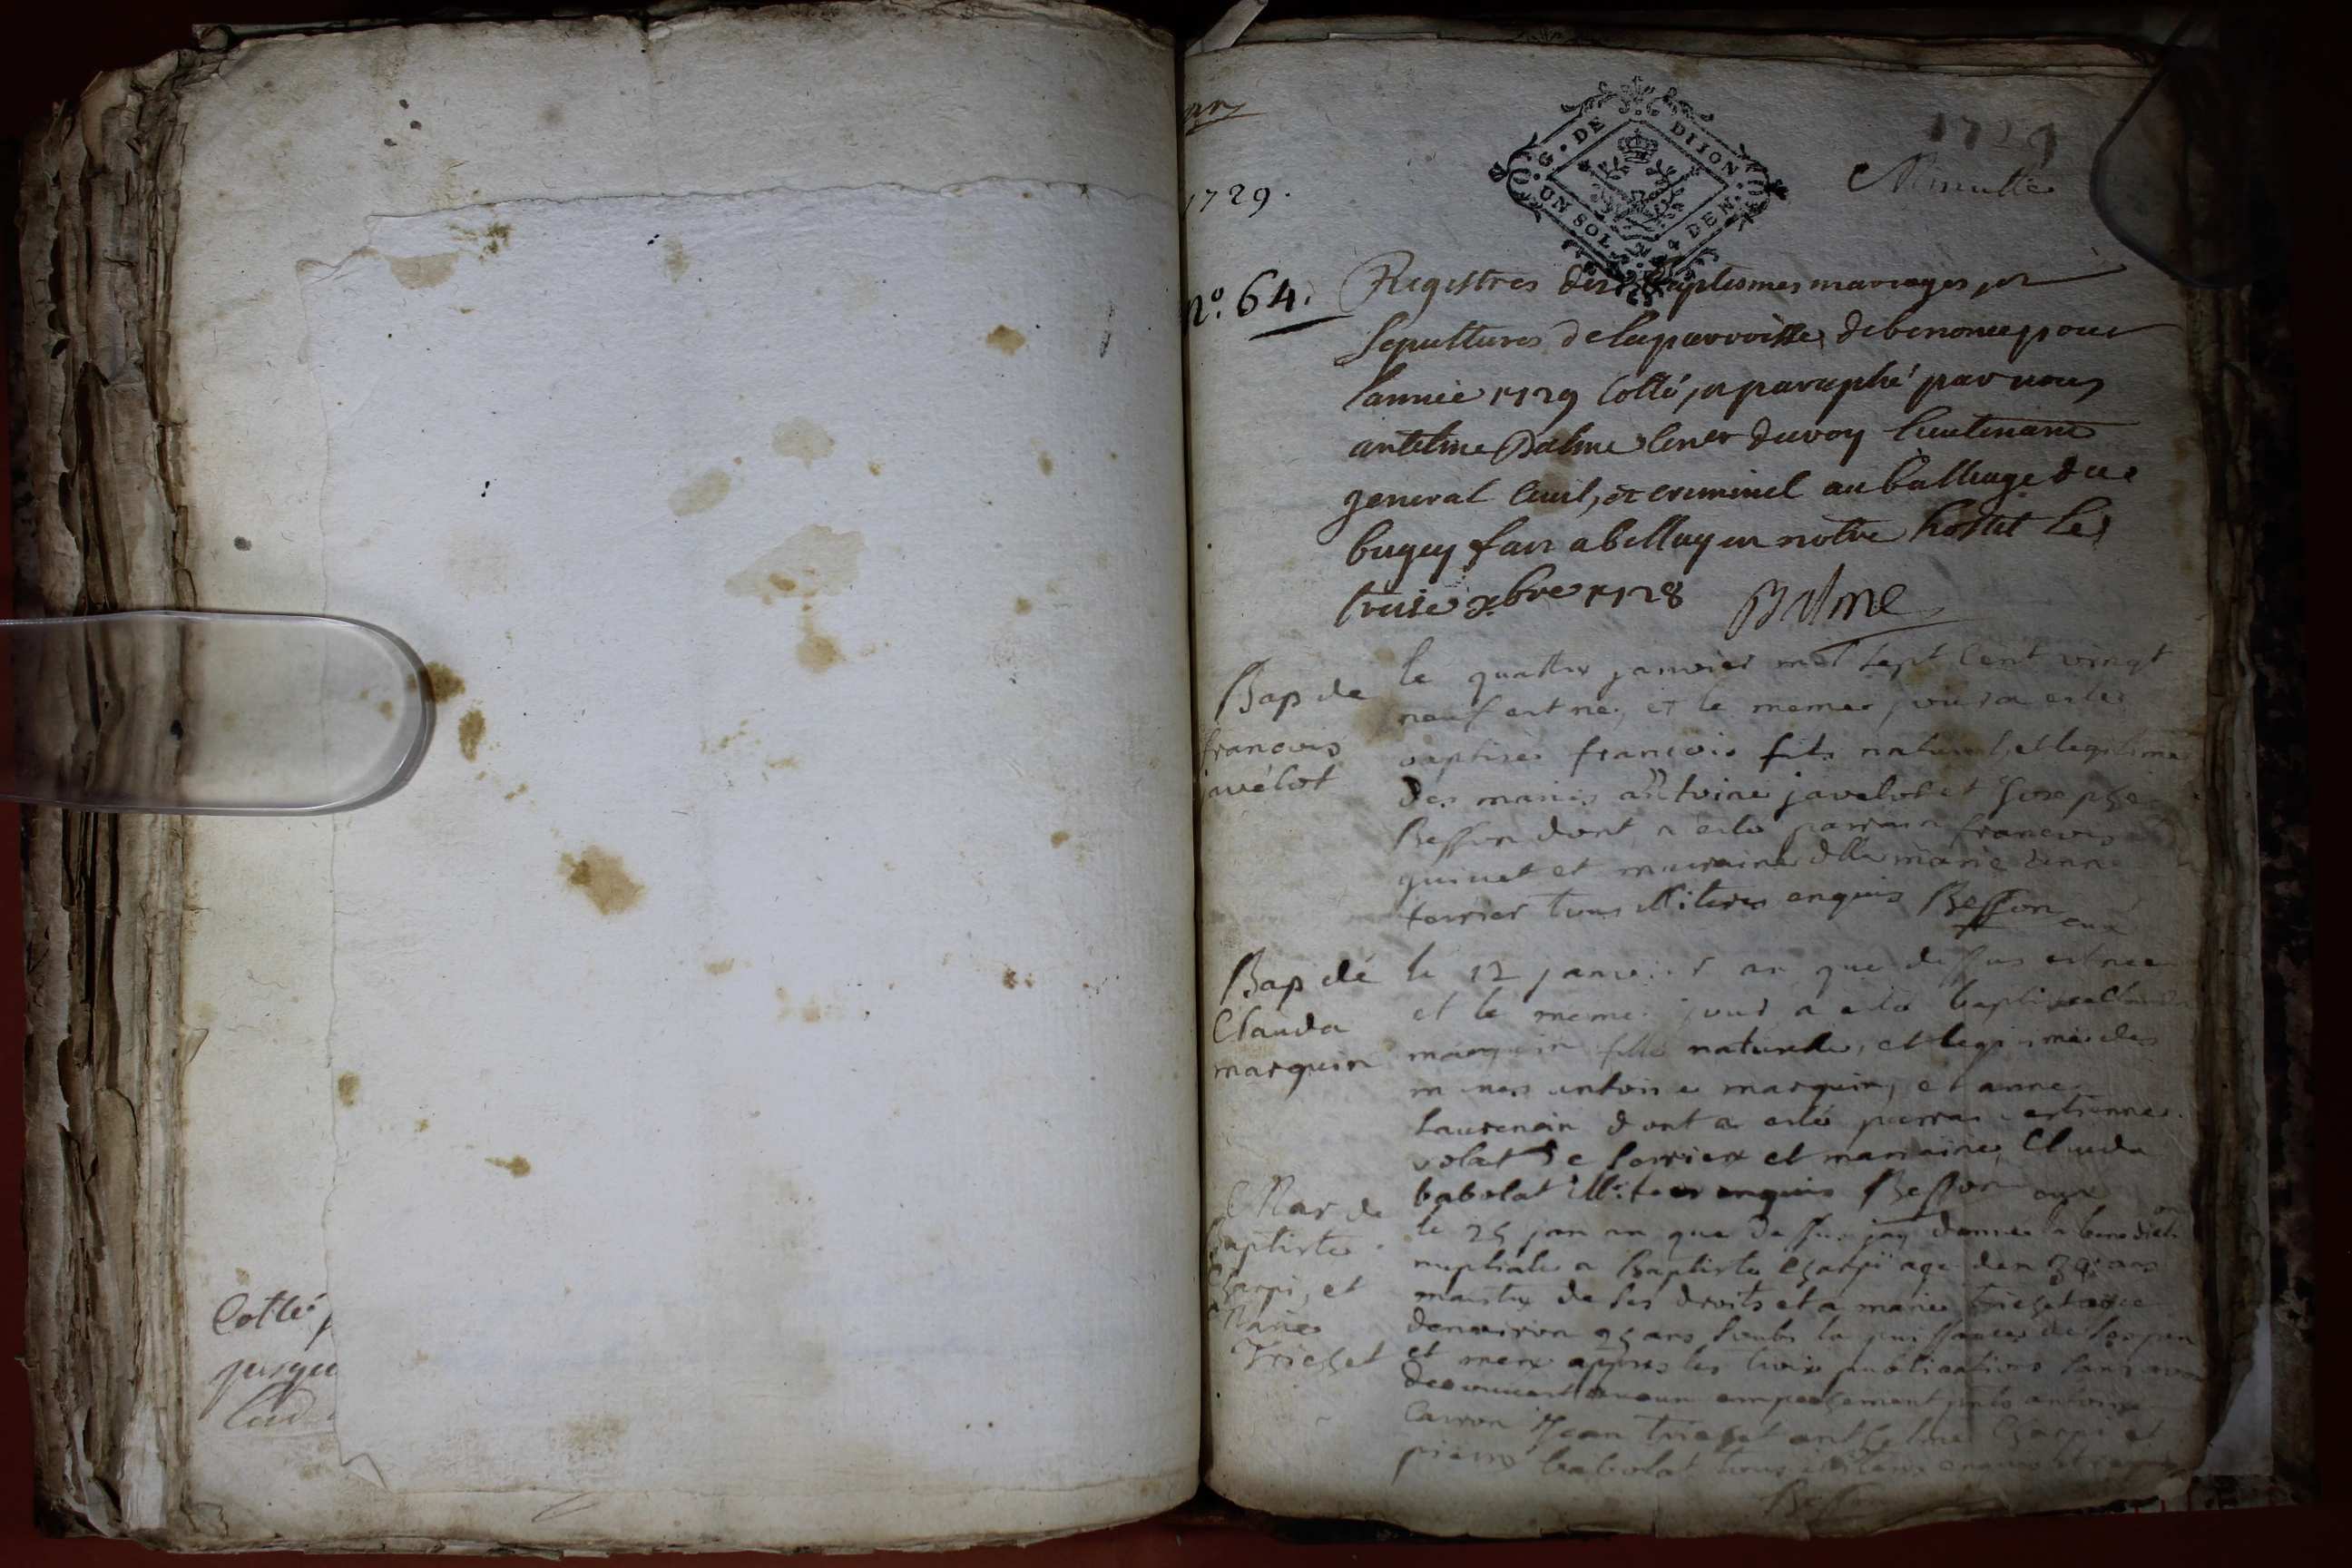 Cotté
jusqu
1729.
n.º 64.
G. DE DIJON
UN SOL 4 DEN.
1729
Minutte
Registres des baptesmes mariages, et
sepultures de la parroisse de benonce pour
l'année 1729 Cotté, et paraphé par nous
antelme Balme Coner du roy lieutenant
general Civil, et criminel au balliage du
bugey fait a belley en notre hostel le
treise xbre 1728 Balme
Bap de
francois
javelot
le quattre janvier mil sept cent vingt
neuf est ne, et le meme jour a esté
baptisé francois fils naturel, et legitime
des mariés antoine javelot et Josephe
Besson dont a esté parrain francois
guinet et marraine dlle marie anne
terrier tous illiteres enquis Besson curé
Bap de
Clauda
marquin
le 12 janvier an que dessus est née
et le meme jour a esté baptisee Clauda
marquin fille naturelle, et legitime des
maries antoine marquin, et anne
Laurencin dont a esté parrain estienne
volat de Sorrieu et marraine, Clauda
babolat illiteres enquis Besson curé
Mar de
Baptiste
Charpi, et
Marie
Triechet
le 25 jan an que dessus jay donné la benediction
nuptiale a Baptiste Charpi agé den 30 ans
maistre de ses droits et a marie triechet agée
denviron 25 ans soubs la puissance de son pere
et mere appres les trois publications sans avoir
decouvert aucun empechement pnts antoine
Carron Jean triechet anthelme Charpi et
pierre babolat tous illiteres enquis
Besson